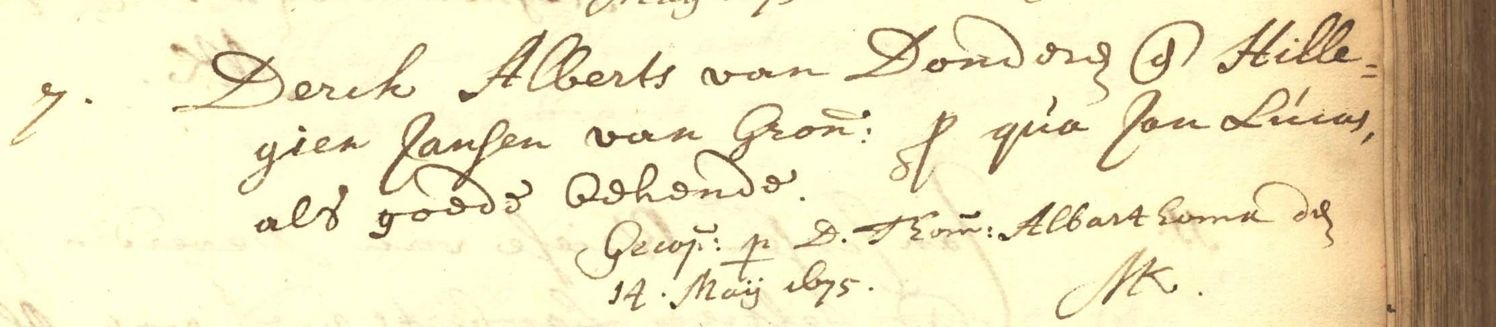 7. Derck Alberts van Donderen & Hille=
gien Jansen van Gron̄: p qua Jan Lucas,
als goede bekende.
Gecop̄: p D. Thom̄: Albarthoma den
14. Maij 1675. MK.